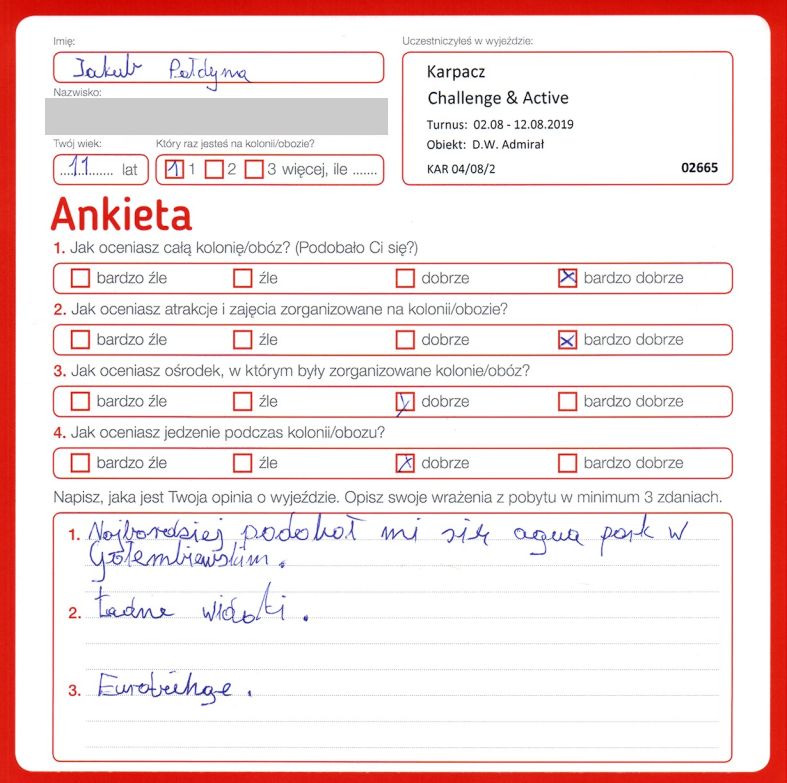 Imię:
Uczestniczyłeś w wyjeździe:
Jakub Pałdyna
Karpacz
Challenge & Active
Nazwisko:
Turnus: 02.08 - 12.08.2019
Obiekt: D.W. Admirał
KAR 04/08/2 02665
Twój wiek: Który raz jesteś na kolonii/obozie?
11 lat 1 1 2 3 więcej, ile .......
Ankieta
1. Jak oceniasz całą kolonię/obóz? (Podobało Ci się?)
bardzo źle źle dobrze bardzo dobrze
2. Jak oceniasz atrakcje i zajęcia zorganizowane na kolonii/obozie?
bardzo źle źle dobrze bardzo dobrze
3. Jak oceniasz ośrodek, w którym były zorganizowane kolonie/obóz?
bardzo źle źle dobrze bardzo dobrze
4. Jak oceniasz jedzenie podczas kolonii/obozu?
bardzo źle źle dobrze bardzo dobrze
Napisz, jaka jest Twoja opinia o wyjeździe. Opisz swoje wrażenia z pobytu w minimum 3 zdaniach.
1. Najbardziej podobał mi się agua park w
Gołembiewskim.
2. Ładne widoki.
3.